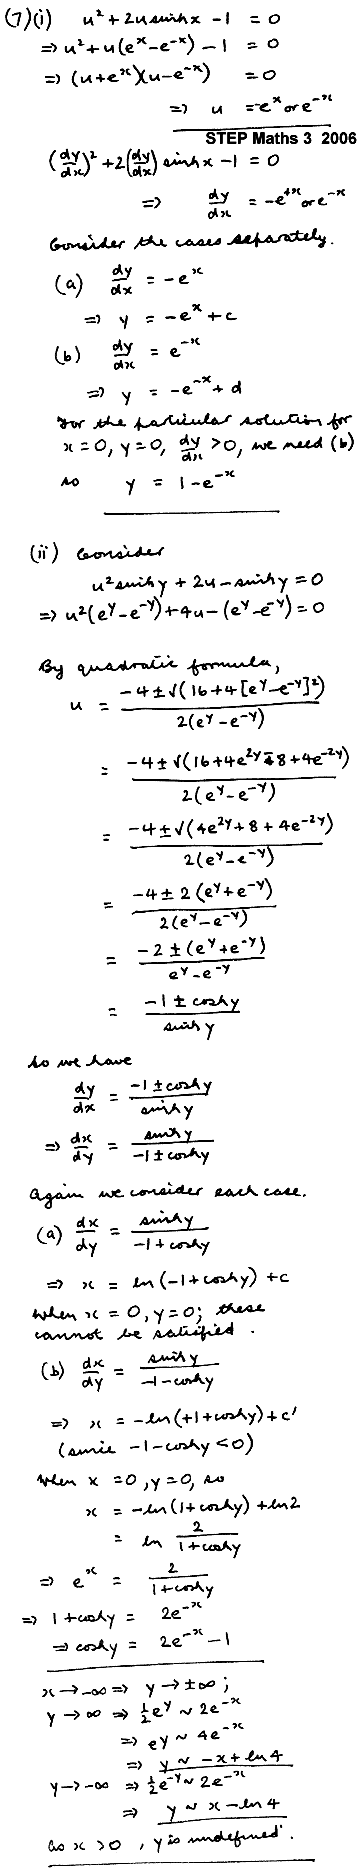 (7)(i) u² + 2u sinh x - 1 = 0
⇒ u² + u(eˣ - e⁻ˣ) - 1 = 0
⇒ (u + eˣ)(u - e⁻ˣ) = 0
⇒ u = -eˣ or e⁻ˣ
STEP Maths 3 2006
(dy/dx)² + 2(dy/dx) sinh x - 1 = 0
⇒ dy/dx = -e⁺ˣ or e⁻ˣ
Consider the cases separately.
(a) dy/dx = -eˣ
⇒ y = -eˣ + c
(b) dy/dx = e⁻ˣ
⇒ y = -e⁻ˣ + d
For the particular solution for
x = 0, y = 0, dy/dx > 0, we need (b)
so y = 1 - e⁻ˣ
(ii) Consider
u² sinh y + 2u - sinh y = 0
⇒ u²(eʸ - e⁻ʸ) + 4u - (eʸ - e⁻ʸ) = 0
By quadratic formula,
u = (-4 ± √(16 + 4[eʸ - e⁻ʸ]²)) / 2(eʸ - e⁻ʸ)
= (-4 ± √(16 + 4e²ʸ - 8 + 4e⁻²ʸ)) / 2(eʸ - e⁻ʸ)
= (-4 ± √(4e²ʸ + 8 + 4e⁻²ʸ)) / 2(eʸ - e⁻ʸ)
= (-4 ± 2(eʸ + e⁻ʸ)) / 2(eʸ - e⁻ʸ)
= (-2 ± (eʸ + e⁻ʸ)) / (eʸ - e⁻ʸ)
= (-1 ± cosh y) / sinh y
So we have
dy/dx = (-1 ± cosh y) / sinh y
⇒ dx/dy = sinh y / (-1 ± cosh y)
Again we consider each case.
(a) dx/dy = sinh y / (-1 + cosh y)
⇒ x = ln(-1 + cosh y) + c
When x = 0, y = 0; these
cannot be satisfied.
(b) dx/dy = sinh y / (-1 - cosh y)
⇒ x = -ln(+1 + cosh y) + c'
(since -1 - cosh y < 0)
When x = 0, y = 0, so
x = -ln(1 + cosh y) + ln 2
= ln 2/(1 + cosh y)
⇒ eˣ = 2/(1 + cosh y)
⇒ 1 + cosh y = 2e⁻ˣ
⇒ cosh y = 2e⁻ˣ - 1
x → -∞ ⇒ y → ±∞;
y → ∞ ⇒ ½eʸ ~ 2e⁻ˣ
⇒ eʸ ~ 4e⁻ˣ
⇒ y ~ -x + ln 4
y → -∞ ⇒ ½e⁻ʸ ~ 2e⁻ˣ
⇒ y ~ x - ln 4
as x > 0, y is undefined.